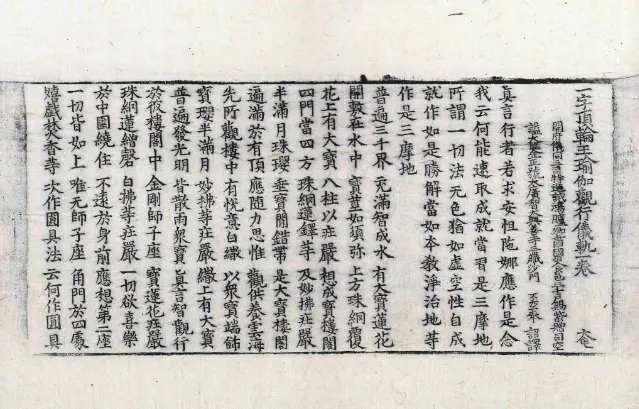 一字頂輪王瑜伽觀行儀軌一卷
開府儀同三司特進試鴻臚卿肅國公食邑三千戶賜紫贈司空
謚大鑒正號大廣智大興善寺三藏沙門 不空奉 詔譯
真言行者若求安怛陁娜應作是念
我云何能速取成就當習是三摩地
所謂一切法无色猶如虛空性自成
就作如是勝解當如本教淨治地等
作是三摩地
普遍三千界 充滿智成水 有大寶蓮花
開敷在水中 寶莖如須弥 上方珠網覆
花上有大寶 八柱以莊嚴 想成寶樓閣
四門當四方 珠網蓮鐸等 及妙拂莊嚴
半滿月珠瓔 垂寶閒錯帶 是大寶樓閣
遍滿於有頂 應随力思惟 觀供養雲海
先所觀樓中 有悅意白繖 以衆寶端飾
寶瓔半滿月 妙拂等莊嚴 繖上有大寶
普遍發光明 皆散雨衆寶 真言智觀行
於彼樓閣中 金剛師子座 寶蓮花莊嚴
珠網蓮繪磬 白拂等莊嚴 一切欲喜樂
於中圍繞住 不遠於身前 應想第二座
一切皆如上 唯无師子座 角門於四處
嬉戲焚香等 次作圓具法 云何作圓具